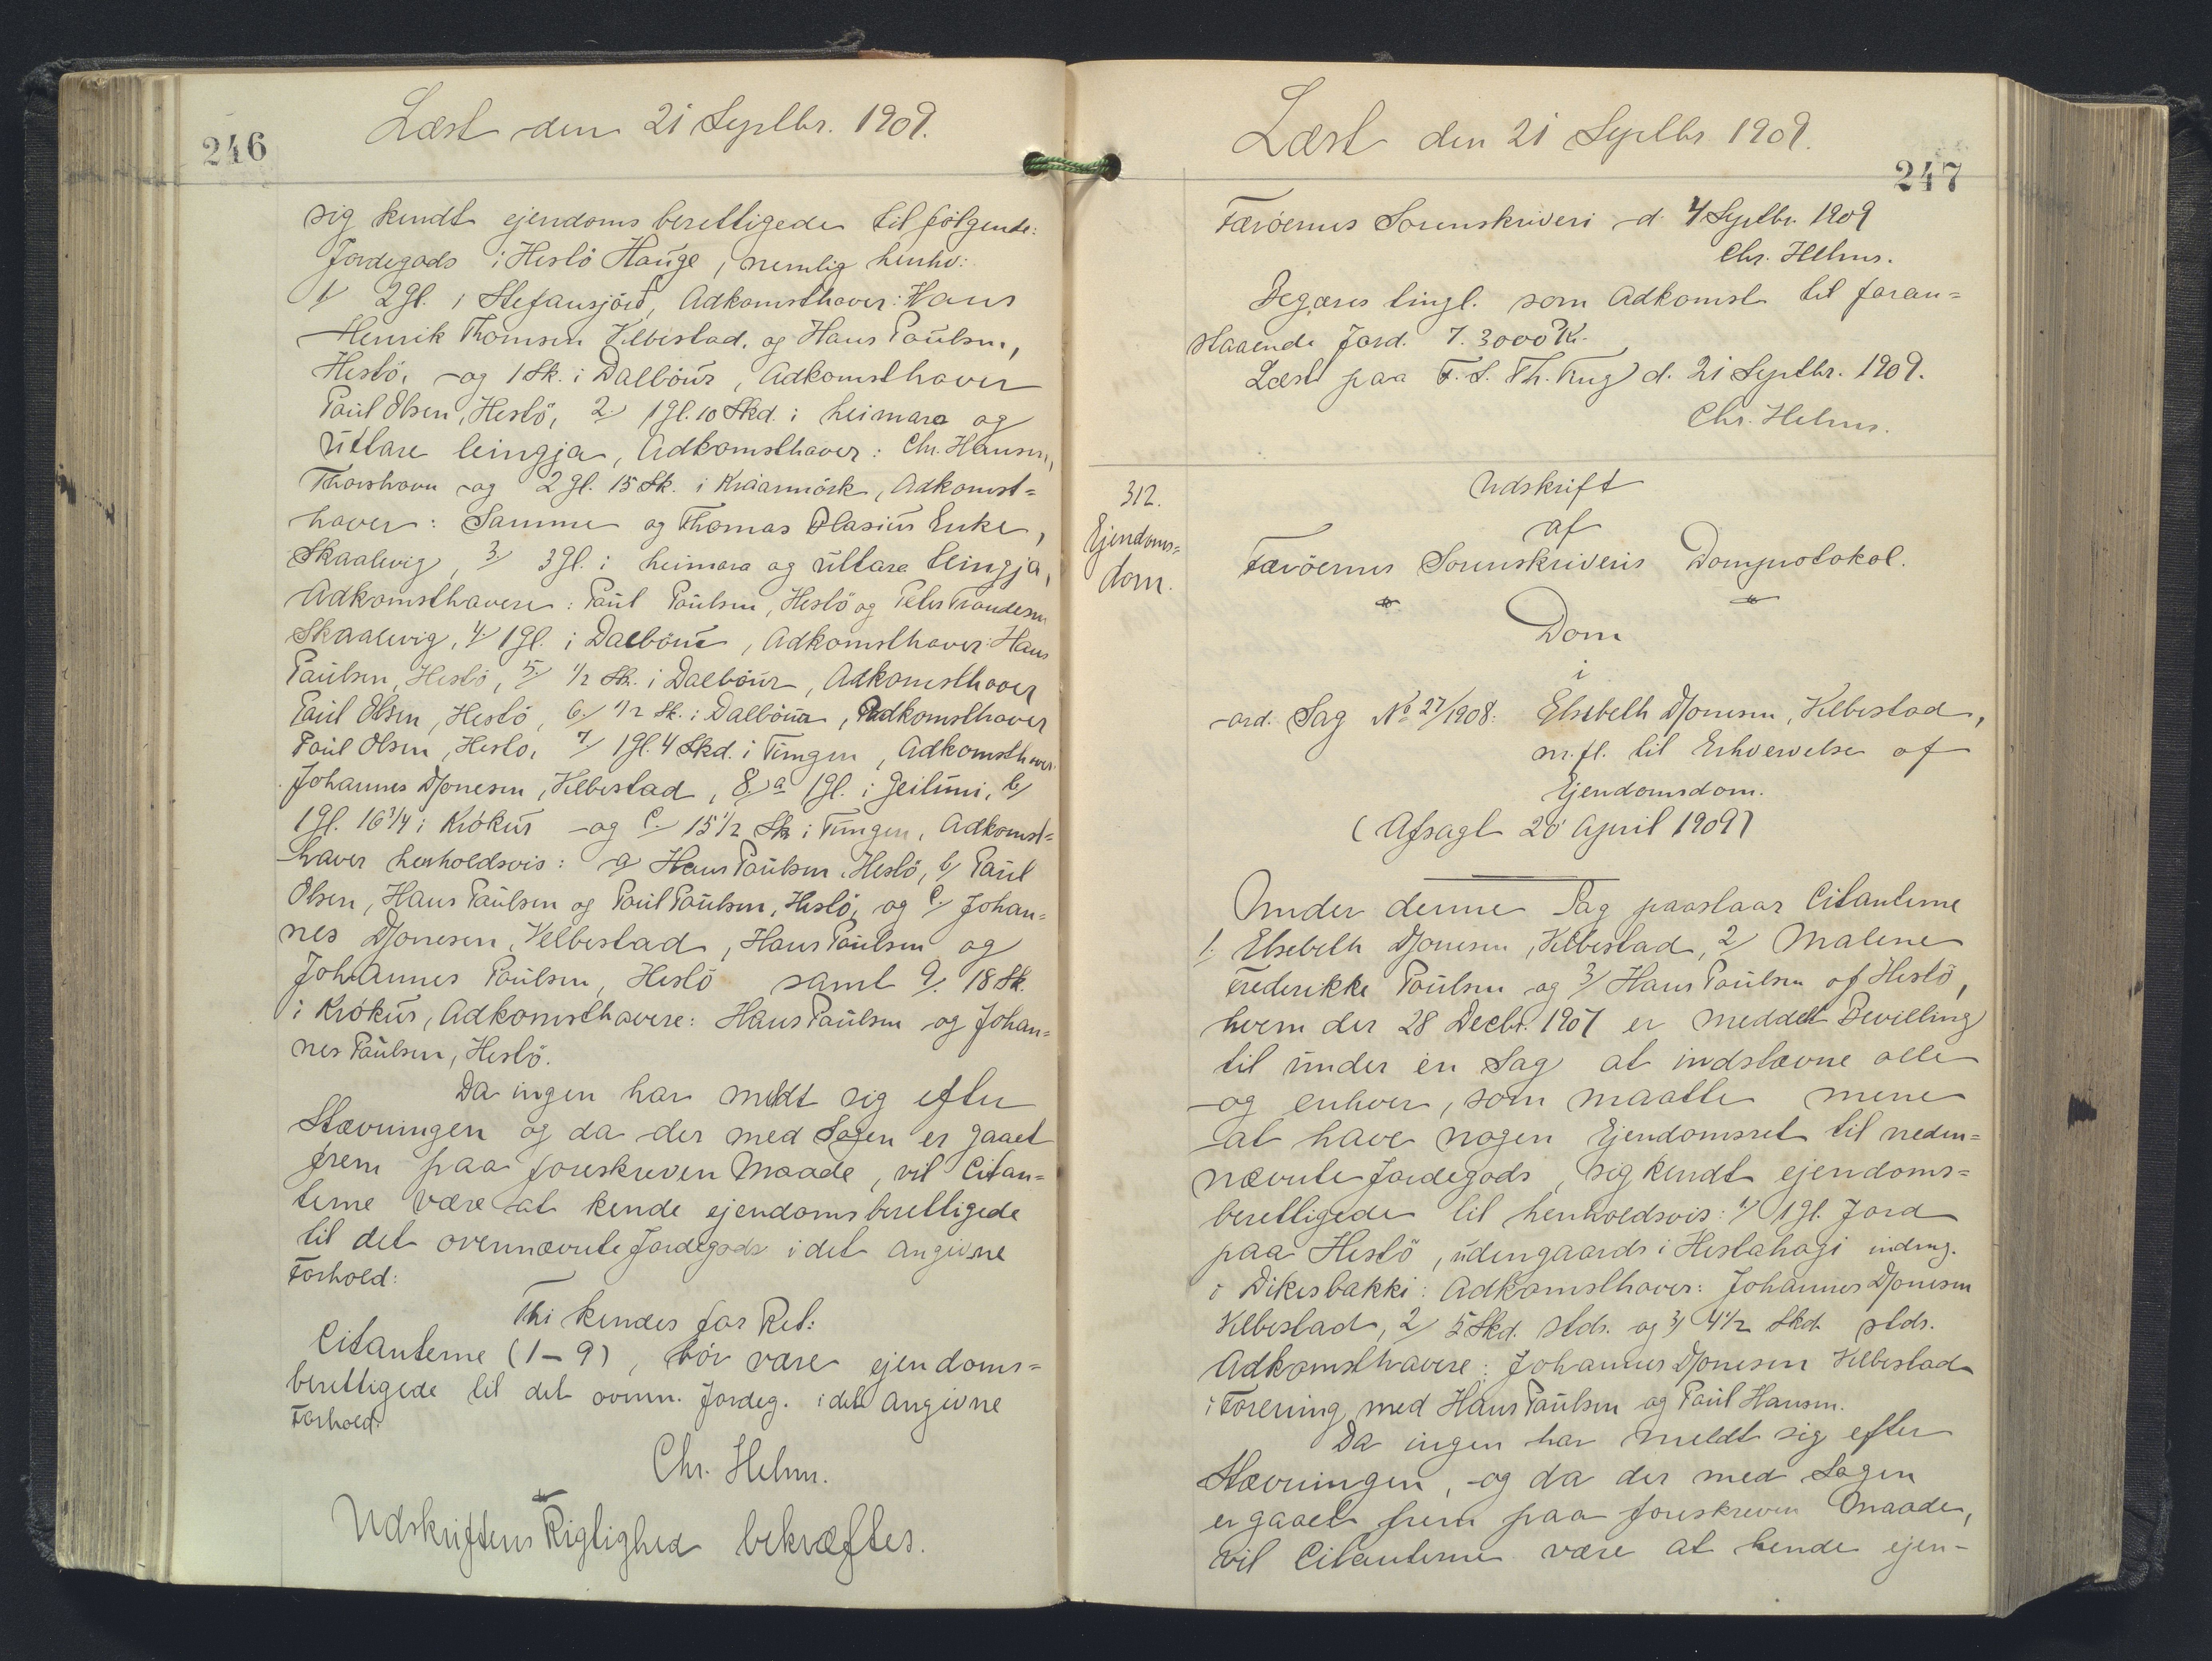 246
Læst den 21 Septbr. 1909.
sig kendt ejendomsberettigede til følgende:
Jordegods i Hestö Hauge, nemlig henhv:
1/ 2 gl. i Stefansjörd, Adkomsthaver: Hans
Henrik Thomsen Velbestad, og Hans Paulsen,
Hestö, og 1 Sk. i Dalböur, Adkomsthaver
Paul Olsen, Hestö, 2/ 1 gl. 10 Skd. i heimara og
uttare leingja, Adkomsthaver: Chr. Hansen,
Thorshavn og 2 gl. 15 Sk. i Kráarmörk, Adkomst=
haver: Samme og Thomas Blasius Enke,
Skaalevig, 3/ 3 gl. i heimara og uttara leingja,
Adkomsthavere: Paul Paulsen, Hestö og Peter Trondesen
Skaalevig, 4/ 1 gl. i Dalböur, Adkomsthaver: Hans
Paulsen, Hestö, 5/ 1/2 Sk. i Dalböur, Adkomsthaver
Paul Olsen, Hestö, 6/ 1/2 Sk. i Dalböur, Adkomsthaver
Paul Olsen, Hestö, 7/ 1 gl. 4 Skd. i Tungen, Adkomsthaver
Johannes Djonesen, Velbestad, 8/ a 1 gl. i Geilini, b/
1 gl. 16 3/4 i Krókur og c/ 15 1/2 Sk i Tungen, Adkomst=
haver henholdsvis: a/ Hans Paulsen, Hestö, b/ Paul
Olsen, Hans Paulsen og Paul Paulsen, Hestö, og c/ Johan=
nes Djonesen, Velbestad, Hans Paulsen og
Johannes Paulsen, Hestö samt 9/ 18 Sk.
i Krókur, Adkomsthavere: Hans Paulsen og Johan=
nes Paulsen, Hestö.
Da ingen har meldt sig efter
Stævningen og da der med Sagen er gaaet
frem paa foreskreven Maade, vil Citan=
terne være at kende ejendomsberettigede
til det ovennævnte Jordegods i det angivne
Forhold:
Thi kendes for Ret:
Citanterne (1-9), bör være ejendoms=
berettigede til det ovenn. Jordeg. i det angivne
Forhold.
Chr. Helms.
Udskriftens Rigtighed bekræftes.
Læst den 21 Septbr 1909.
247
Færöernes Sorenskriveri d. 4 Septbr. 1909
Chr. Helms.
Begæres tingl. som Adkomst til foran=
staaende Jord. T. 3000 Kr.
Læst paa F. S. Th. Ting d. 21 Septbr. 1909.
Chr. Helms.
312.
Ejendoms=
dom.
Udskrift
af
Færöernes Sorenskriveris Domprotokol.
Dom
i
ord. Sag No 27/1908: Elsebeth Djonesen, Velbestad,
m.fl. til Erhvervelse af
Ejendomsdom.
(Afsagt 20 April 1909)
Under denne Sag paastaar Citanterne
1. Elsebeth Djonesen, Velbestad, 2/ Malene
Frederikke Paulsen og 3/ Hans Paulsen af Hestö,
hvem der 28 Decbr. 1907 er meddelt Bevilling
til under en Sag at indstævne alle
og enhver, som maatte mene
at have nogen Ejendomsret til neden=
nævnte Jordegods, sig kendt ejendoms=
berettigede til henholdsvis: 1/ 1 gl. Jord
paa Hestö, udengaards i Hestahagi indmg.
i Dikesbakki: Adkomsthaver: Johannes Djonesen
Velbestad, 2/ 5 Skd. stds. og 3/ 4 1/2 Skd stds.
Adkomsthavere: Johannes Djonesen Velbestad
i Forening med Hans Paulsen og Paul Hansen.
Da ingen har meldt sig efter
Stævningen, og da der med Sagen
er gaaet frem paa foreskreven Maade,
vil Citanterne være at kende ejen-